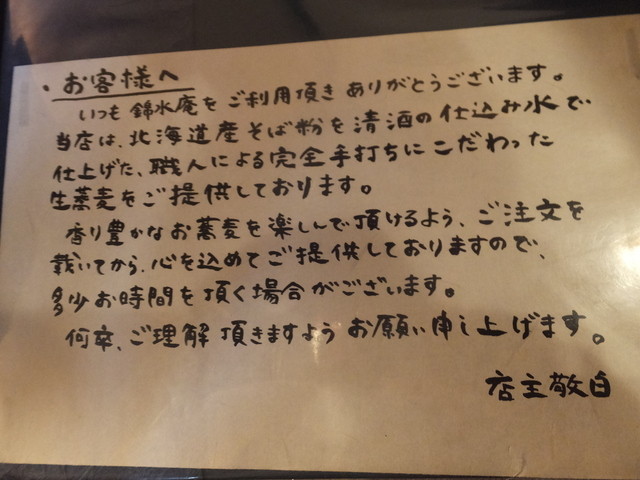 ・お客様へ
いつも錦水庵をご利用頂きありがとうございます。
当店は、北海道産そば粉を清酒の仕込み水で
仕上げた、職人による完全手打ちにこだわった
生蕎麦をご提供しております。
香り豊かなお蕎麦を楽しんで頂けるよう、ご注文を
戴いてから、心を込めてご提供しておりますので、
多少お時間を頂く場合がございます。
何卒、ご理解頂きますようお願い申し上げます。
店主敬白